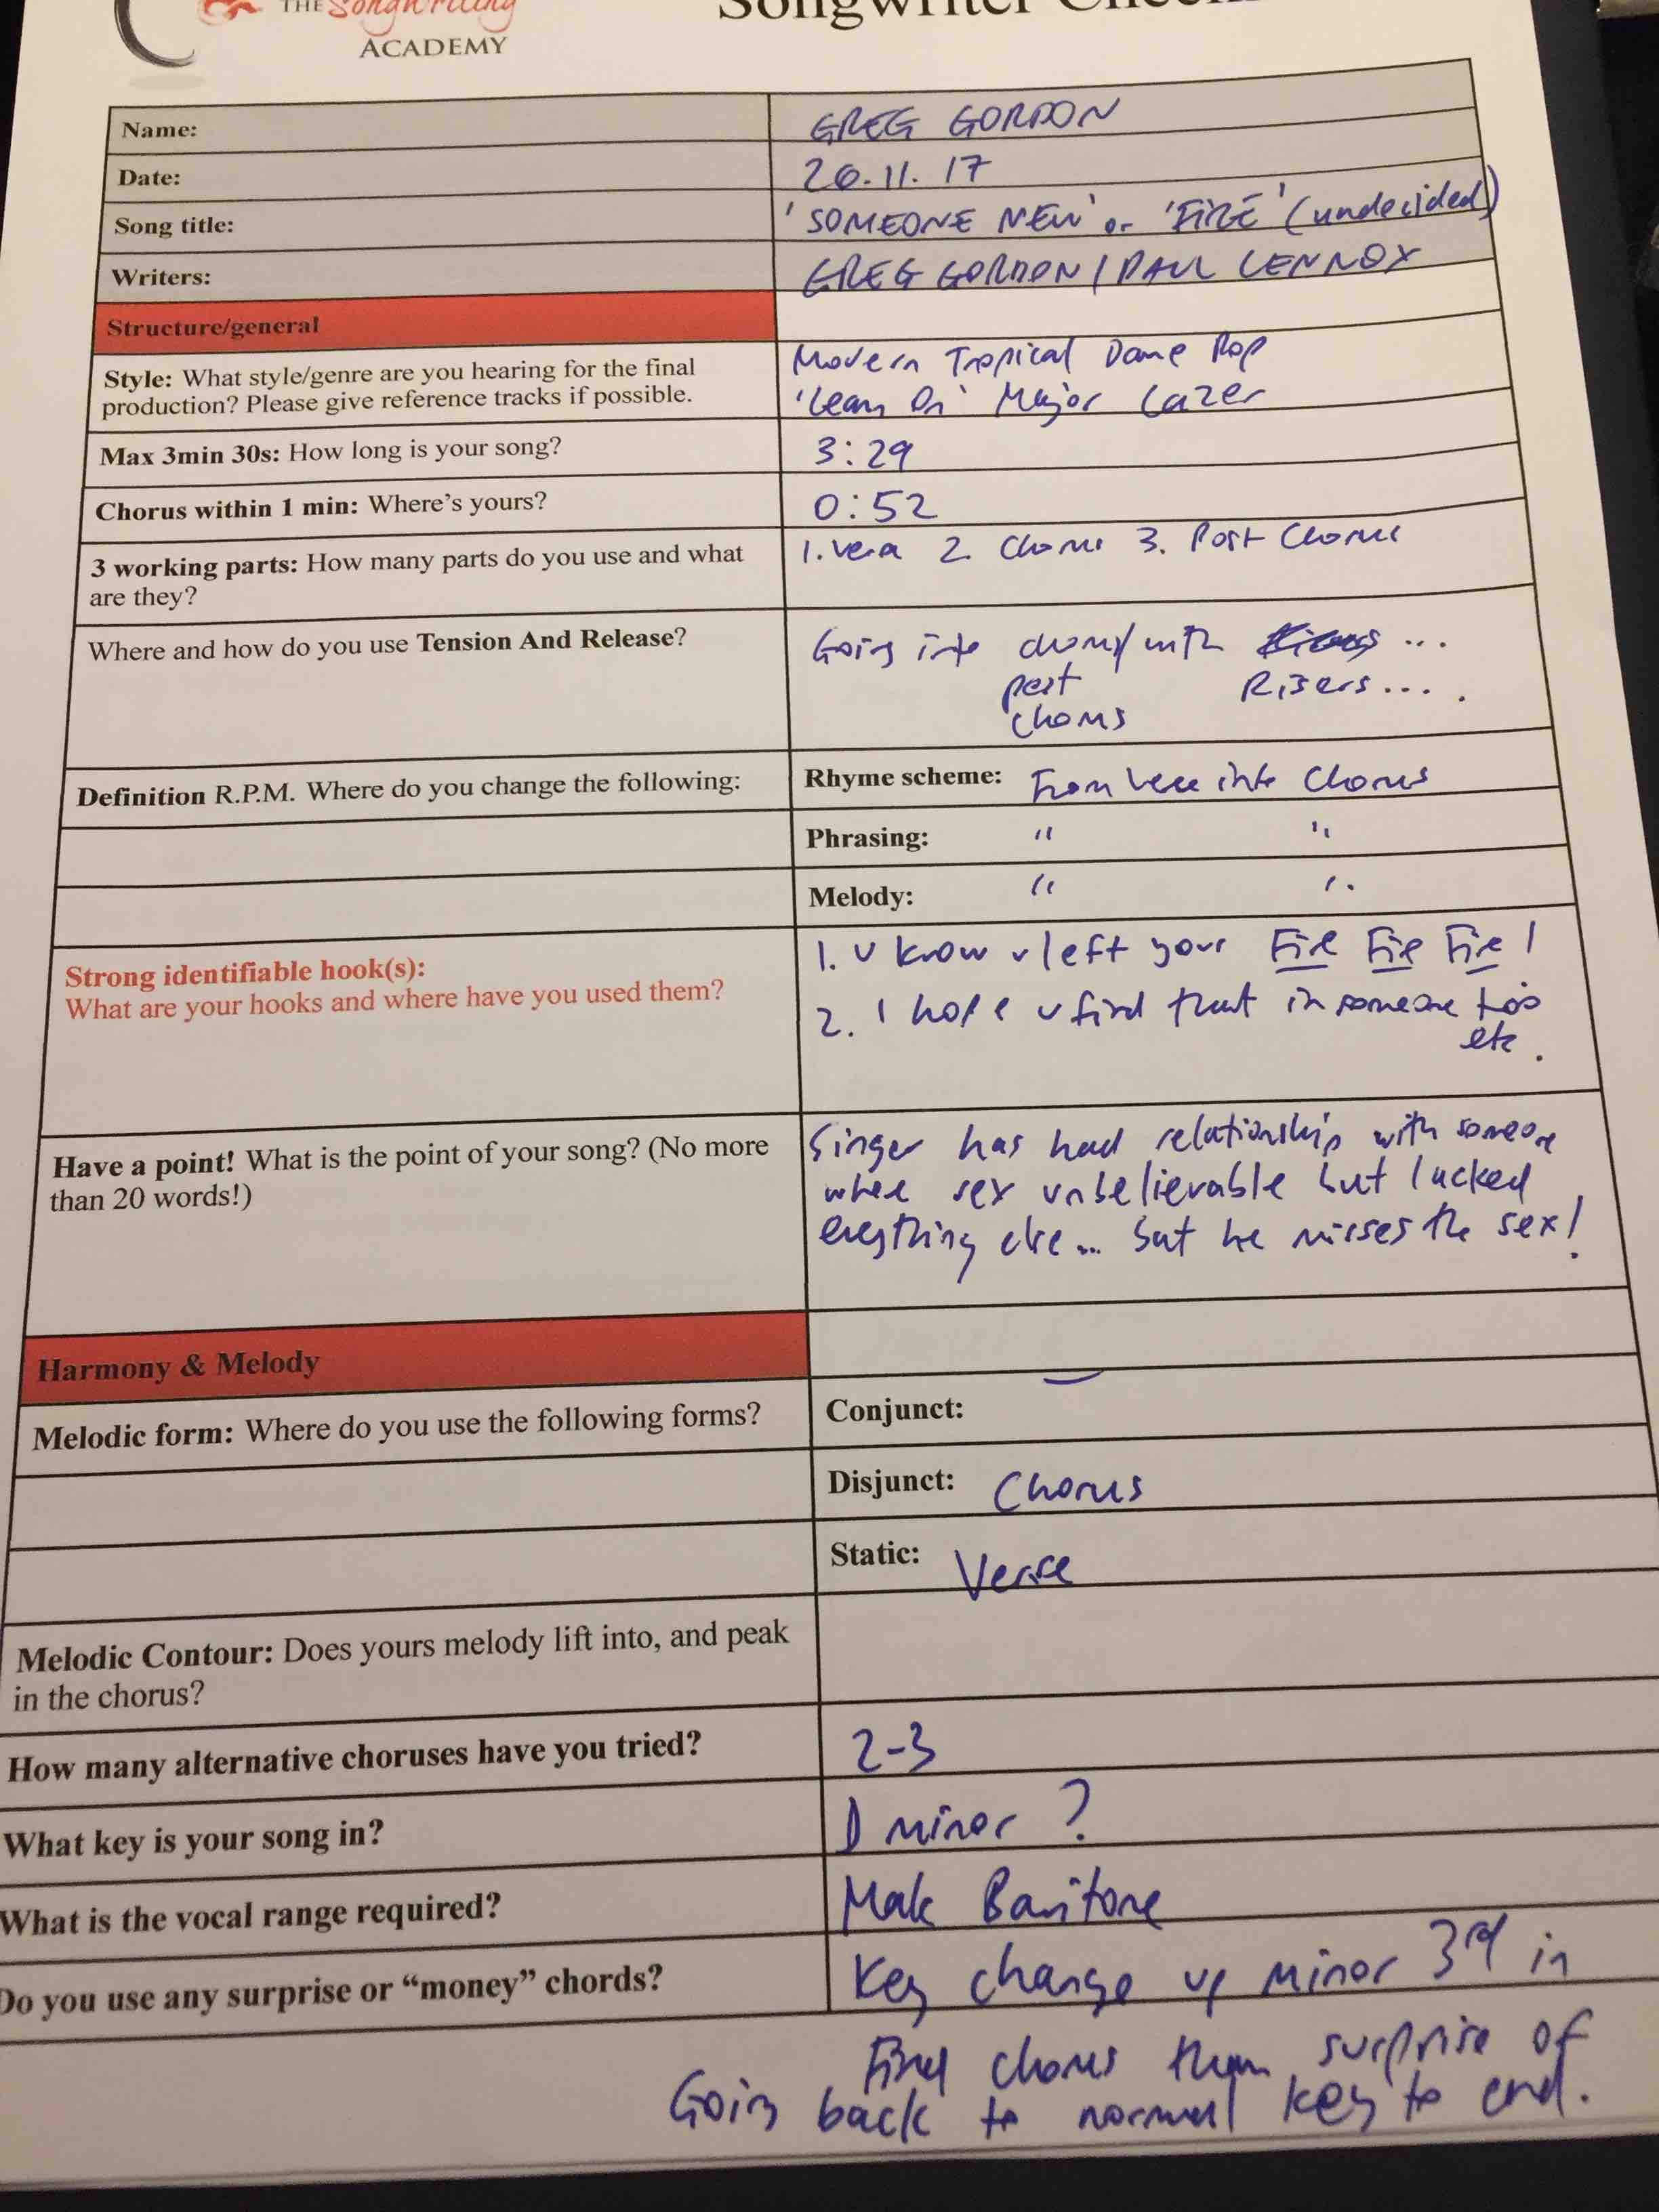 THE Songwriting
ACADEMY
Songwriter
Name: GREG GORDON
Date: 26.11.17
Song title: 'SOMEONE NEW' or 'FIRE' (undecided)
Writers: GREG GORDON / PAUL LENNOX
Structure/general
Style: What style/genre are you hearing for the final
production? Please give reference tracks if possible.
Modern Tropical Dance Pop
'Lean On' Major Lazer
Max 3min 30s: How long is your song? 3:29
Chorus within 1 min: Where's yours? 0:52
3 working parts: How many parts do you use and what
are they?
1. Verse 2. Chorus 3. Post Chorus
Where and how do you use Tension And Release?
Going into chorus/ with ...
post Risers....
chorus
Definition R.P.M. Where do you change the following:
Rhyme scheme: From Verse into Chorus
Phrasing: " "
Melody: " "
Strong identifiable hook(s):
What are your hooks and where have you used them?
1. U know u left your Fire Fire Fire!
2. I hope u find that in someone too
etc.
Have a point! What is the point of your song? (No more
than 20 words!)
Singer has had relationship with someone
where sex unbelievable but lacked
everything else... but he misses the sex!
Harmony & Melody
Melodic form: Where do you use the following forms?
Conjunct:
Disjunct: Chorus
Static: Verse
Melodic Contour: Does yours melody lift into, and peak
in the chorus?
How many alternative choruses have you tried? 2-3
What key is your song in? D minor ?
What is the vocal range required? Male Baritone
Do you use any surprise or "money" chords? Key change up minor 3rd in
Final chorus then surprise of
Going back to normal key to end.